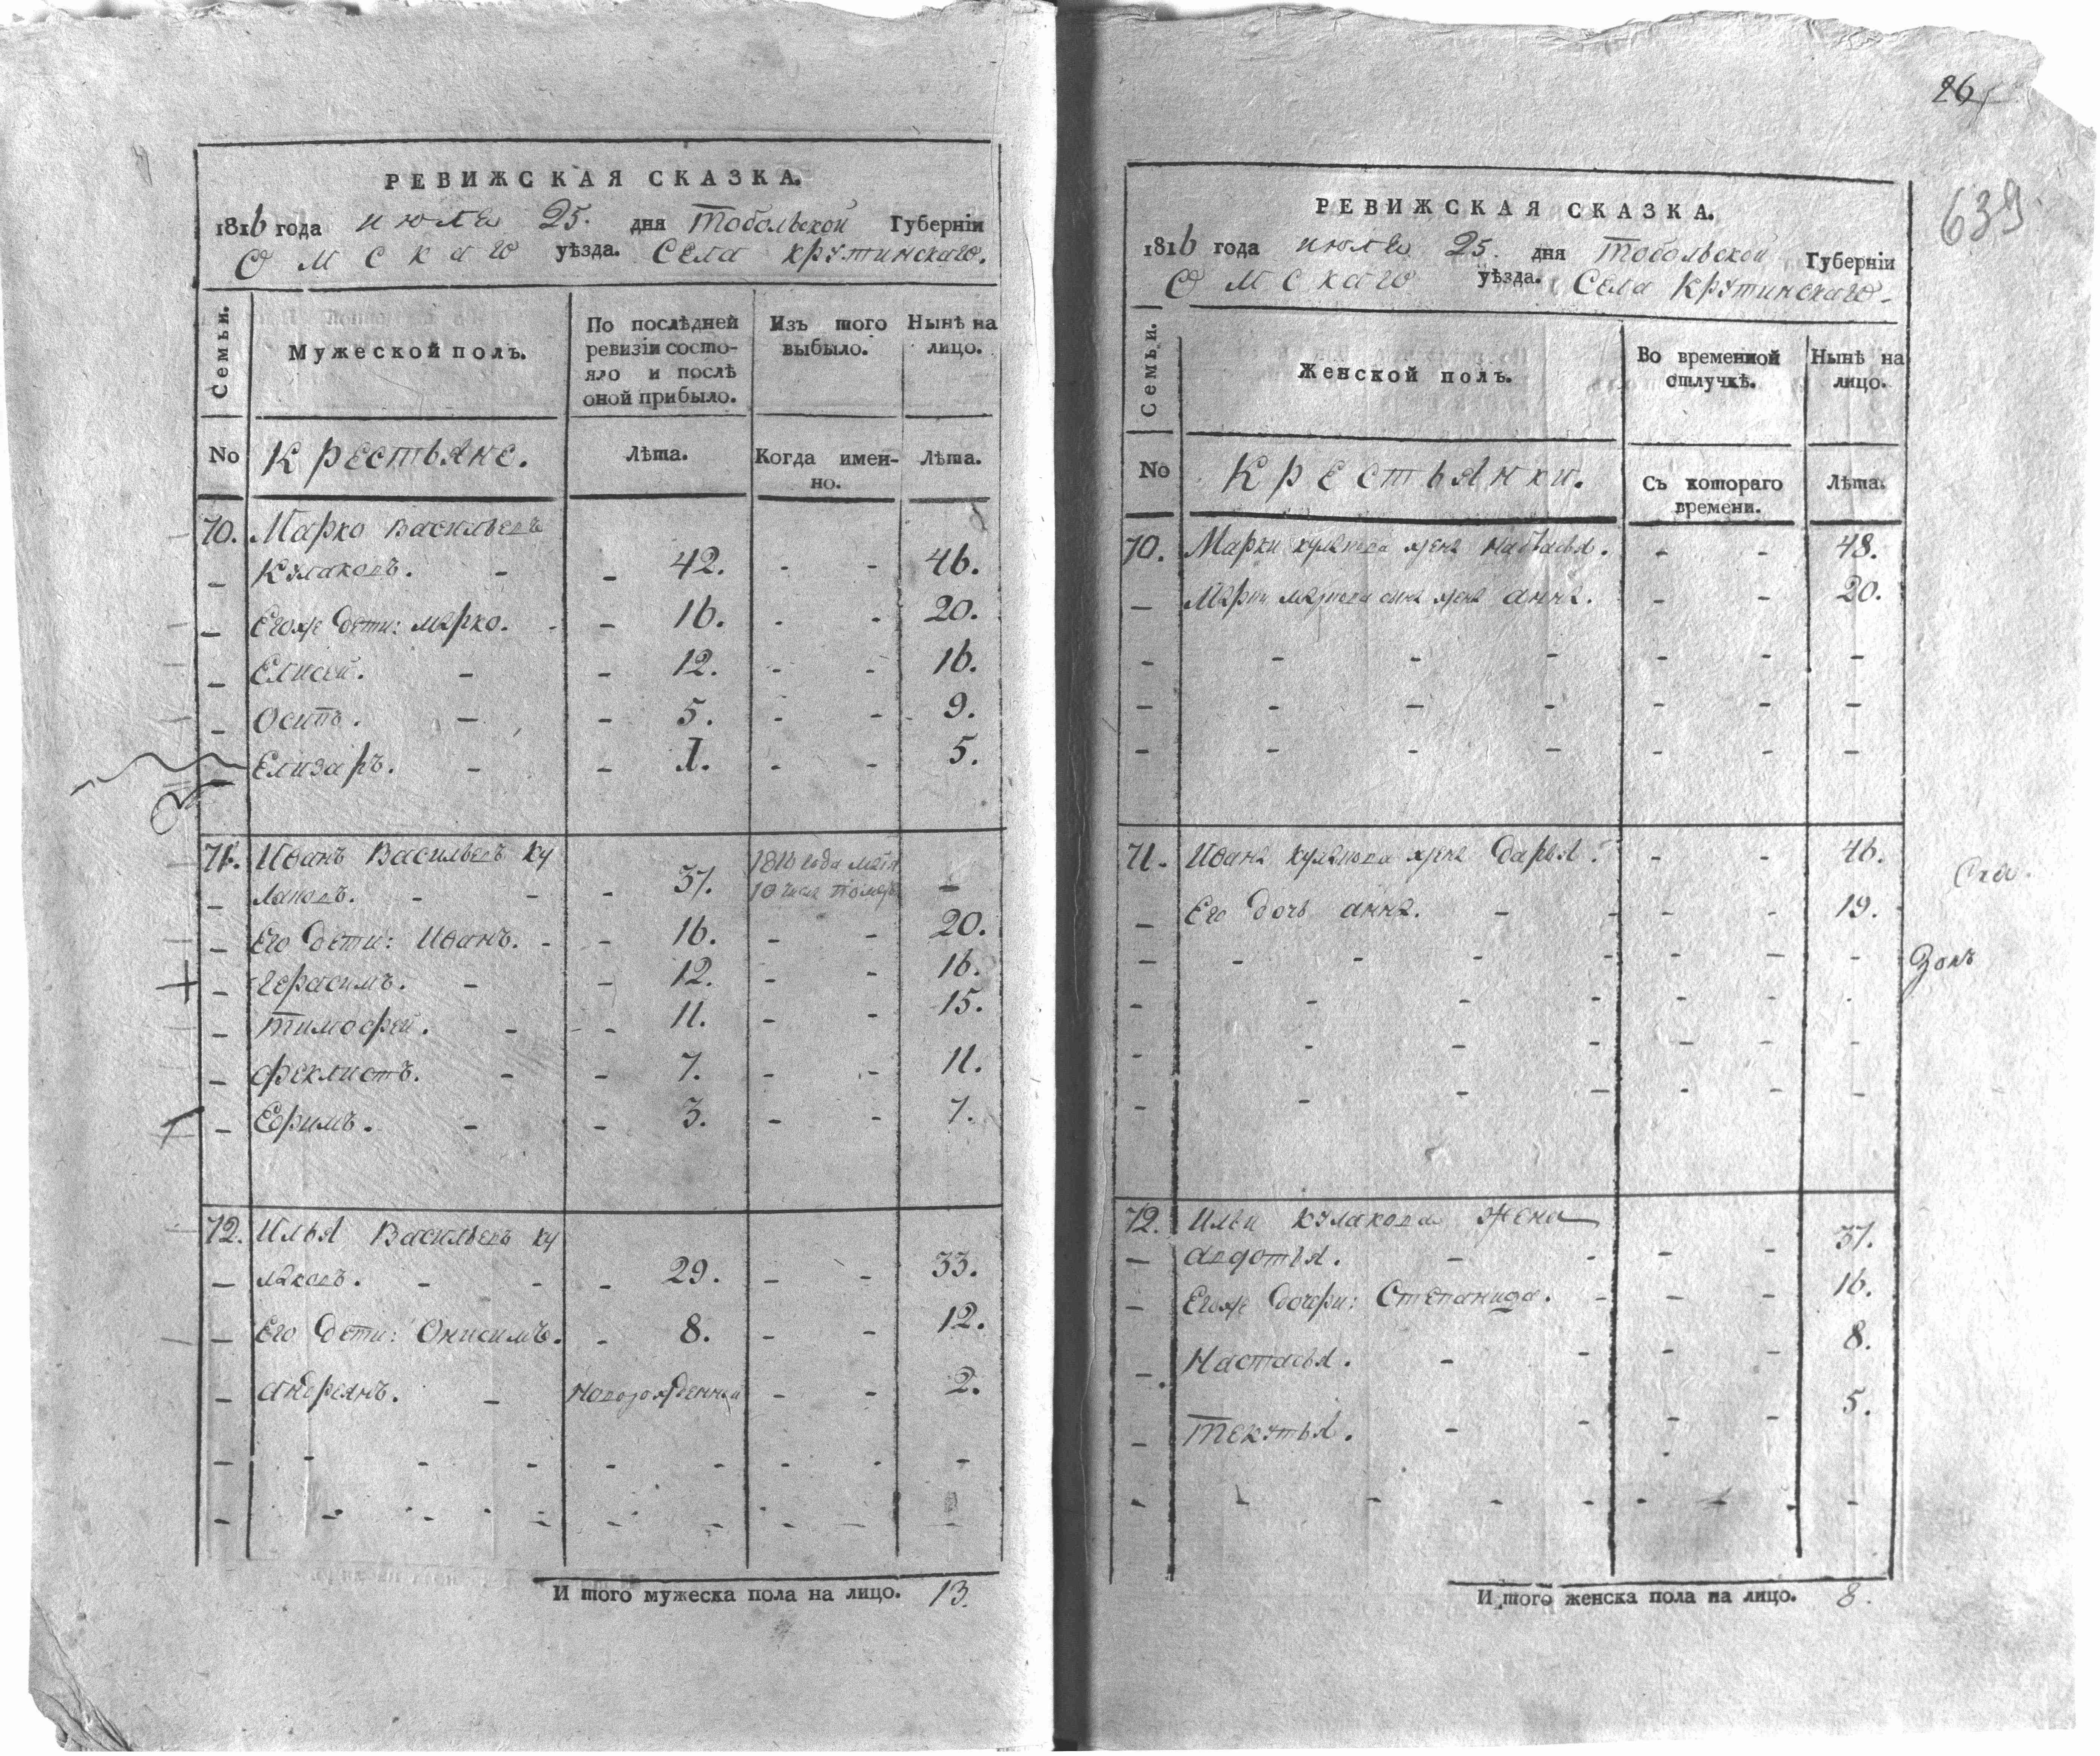 РЕВИЖСКАЯ СКАЗКА.
1816 года июля 25. дня Тобольской Губернїи
Омскаго уѣзда. Села крутинскаго.
Семьи.
Мужеской полъ.
По послѣдней ревизїи состо-
яло и послѣ
оной прибыло.
Изъ того
выбыло.
Нынѣ на
лицо.
No
Крестьяне.
Лѣта.
Когда имен-
но.
Лѣта.
70. Марко Васильевъ
Кулаковъ. - - 42. - - 46.
Егоже дети: марко. - - 16. - - 20.
Елисей. - - 12. - - 16.
Осипъ. - - 5. - - 9.
Елизаръ. - - 1. - - 5.
71. Иванъ Васильевъ Ку
лаковъ. - - - 37. 1816 года мая
10 числа помер -
Его дети: Иванъ. - - 16. - - 20.
Герасимъ. - - 12. - - 16.
тимофей. - - 11. - - 15.
феклистъ. - - 7. - - 11.
Ефимъ. - - 3. - - 7.
72. Илья Васильевъ ку
лаковъ. - - - 29. - - 33.
Его дети: Онисимъ. - 8. - - 12.
андреянъ. - новорожденный - - 2.
И того мужеска пола на лицо. 13.
26
639
РЕВИЖСКАЯ СКАЗКА.
1816 года июля 25. дня Тобольской Губернїи
Омскаго уѣзда. Села Крутинскаго.
Семьи.
Женской полъ.
Во временной
отлучкѣ.
Нынѣ на
лицо.
No
Крестьянки.
Съ котораго
времени.
Лѣта.
70. Марки кулакова жена настасья. - - 48.
Марки маркова сына жена анна. - - 20.
71. Ивана кулакова жена дарья. - - 46.
Его дочь анна. - - - - 19.
72. Ильи кулакова жена
авдотья. - - - - 37.
Егоже дочери: Степанида. - - - 16.
Настасья. - - - - 8.
Текутья. - - - - 5.
И того женска пола на лицо. 8.